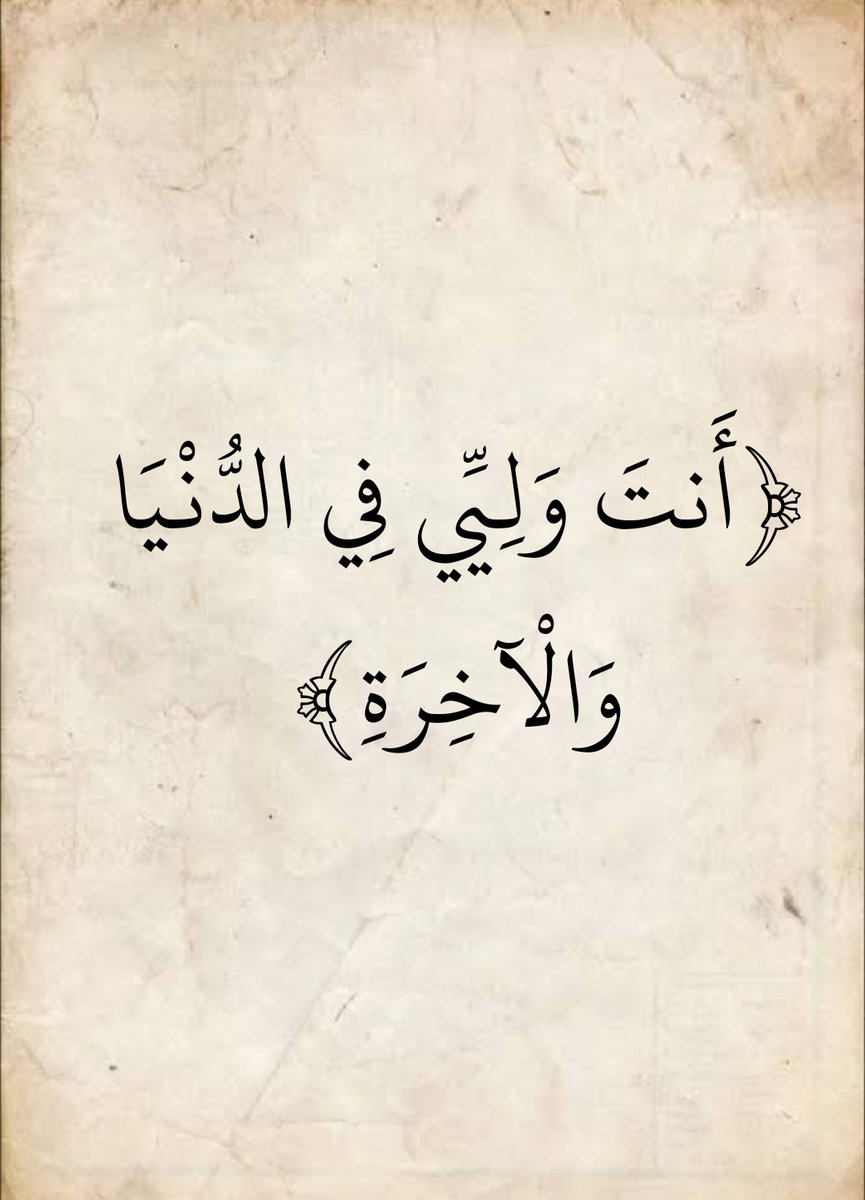 ﴿أَنتَ وَلِيِّي فِي الدُّنْيَا
وَالْآخِرَةِ﴾